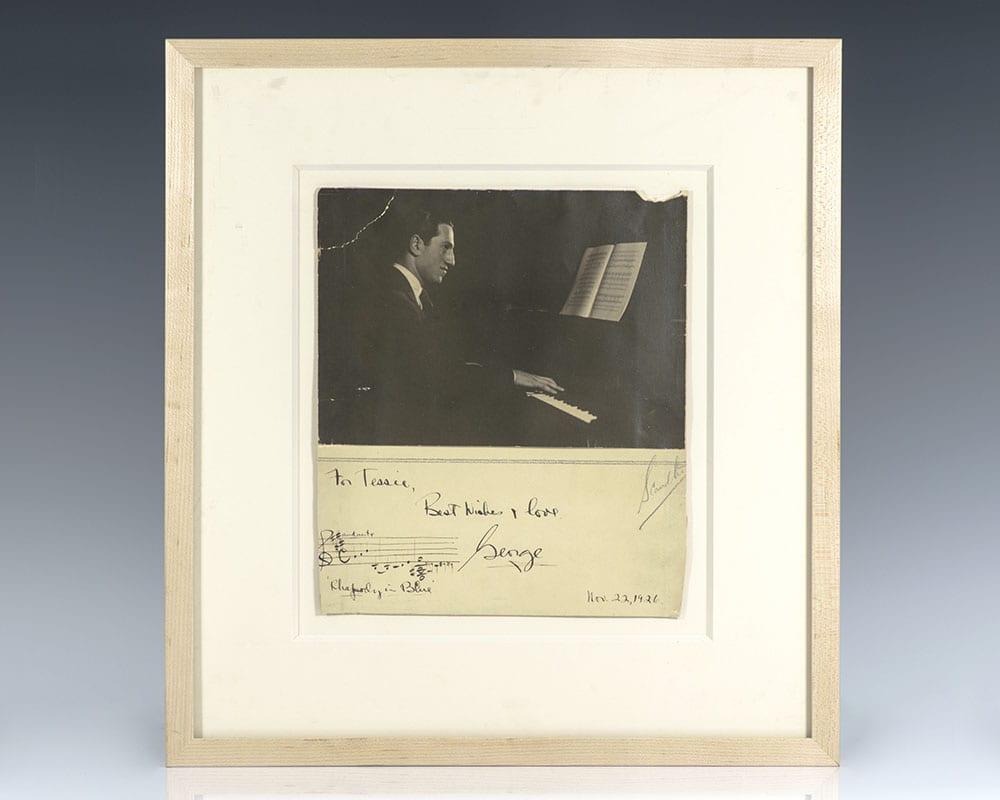 For Tessie,
Best Wishes & love.
George
Andante
"Rhapsody in Blue"
Nov. 22, 1926.